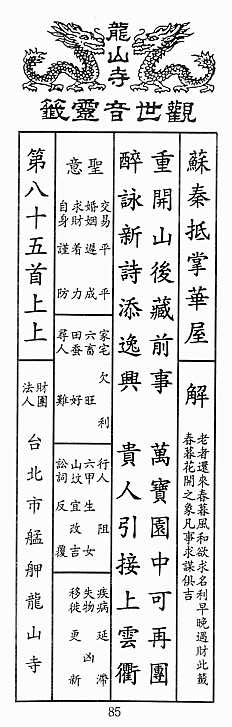 龍山寺
觀世音靈籤
蘇秦抵掌華屋
解
老者還來春暮風和欲求名利早晚遇財此籤
春暮花開之象凡事求謀俱吉
重開山後藏前事 萬寶園中可再團
醉詠新詩添逸興 貴人引接上雲衢
聖意
交易 平平
婚姻 遲成
求財 着力
自身 謹防
家宅 欠利
六畜 旺
田蠶 好
尋人 難
行人 阻
六甲 生女
山墳 宜改吉
訟詞 反覆
疾病 延滯
失物 凶
移徙 更新
第八十五首上上
財團法人 台北市艋舺龍山寺
85